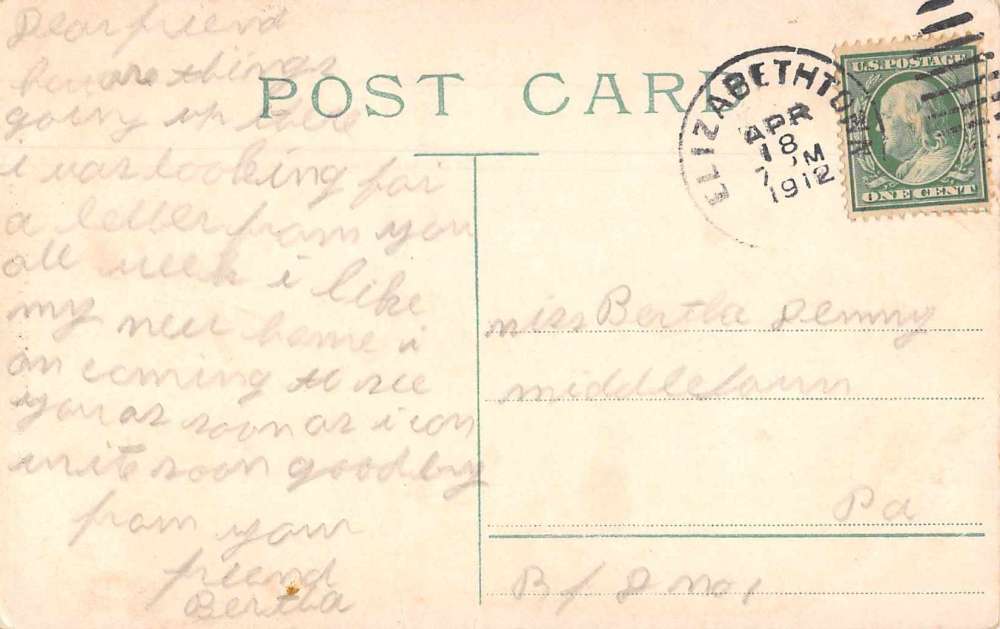 Dear friend
how are things
going up there
i was looking for
a letter from you
all week i like
my new home i
am coming to see
you as soon as i can
write soon good by
from your
friend
Bertha
POST CARD
ELIZABETHTOWN
APR
18
7 M
1912
U.S. POSTAGE
ONE CENT
miss Bertha Demmy
middletown
Pa
R f D no 1